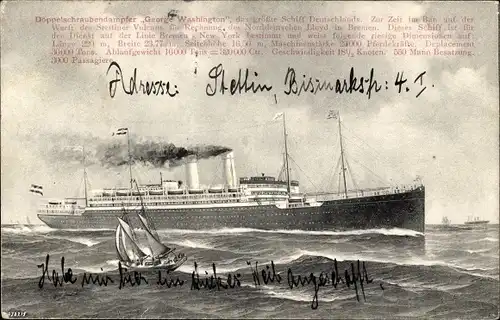 Doppelschraubendampfer „George Washington", das größte Schiff Deutschlands. Zur Zeit im Bau auf der
Werft des Stettiner Vulcans für Rechnung des Norddeutschen Lloyd in Bremen. Dieses Schiff ist für
den Dienst auf der Linie Bremen–New York bestimmt und weist folgende riesige Dimensionen auf:
Länge 220 m, Breite 23,77 m, Seitenhöhe 16,50 m, Maschinenstärke 20000 Pferdekräfte. Deplacement
36000 Tons. Ablaufgewicht 16000 Tons = 320000 Ctr. Geschwindigkeit 18½ Knoten. 550 Mann Besatzung.
3000 Passagiere.
Adresse: Stettin, Bismarckstr: 4. I.
Habe mir hier ein dickes Weib angeschafft.